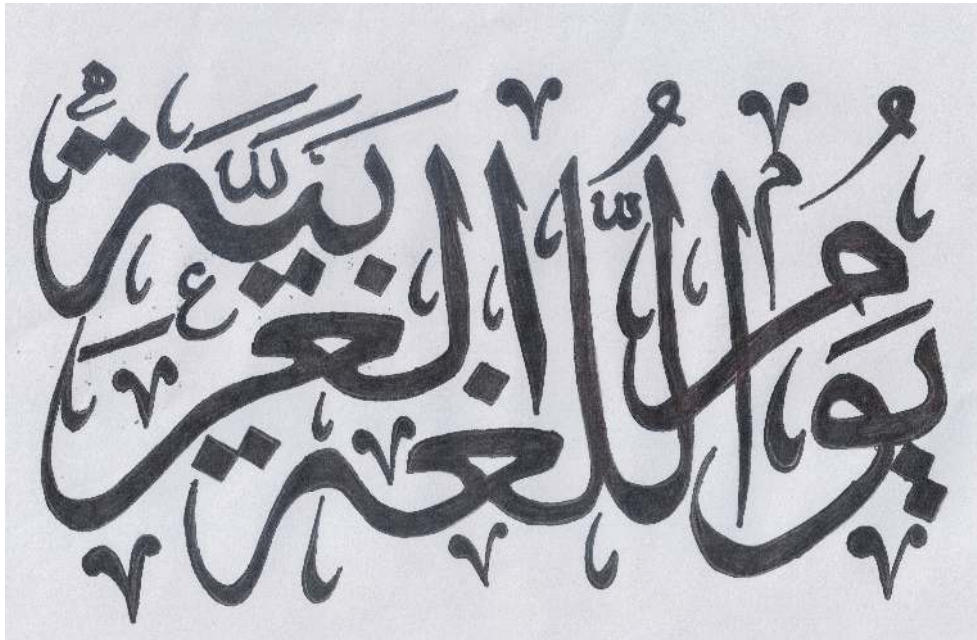 يوم اللغة العربية